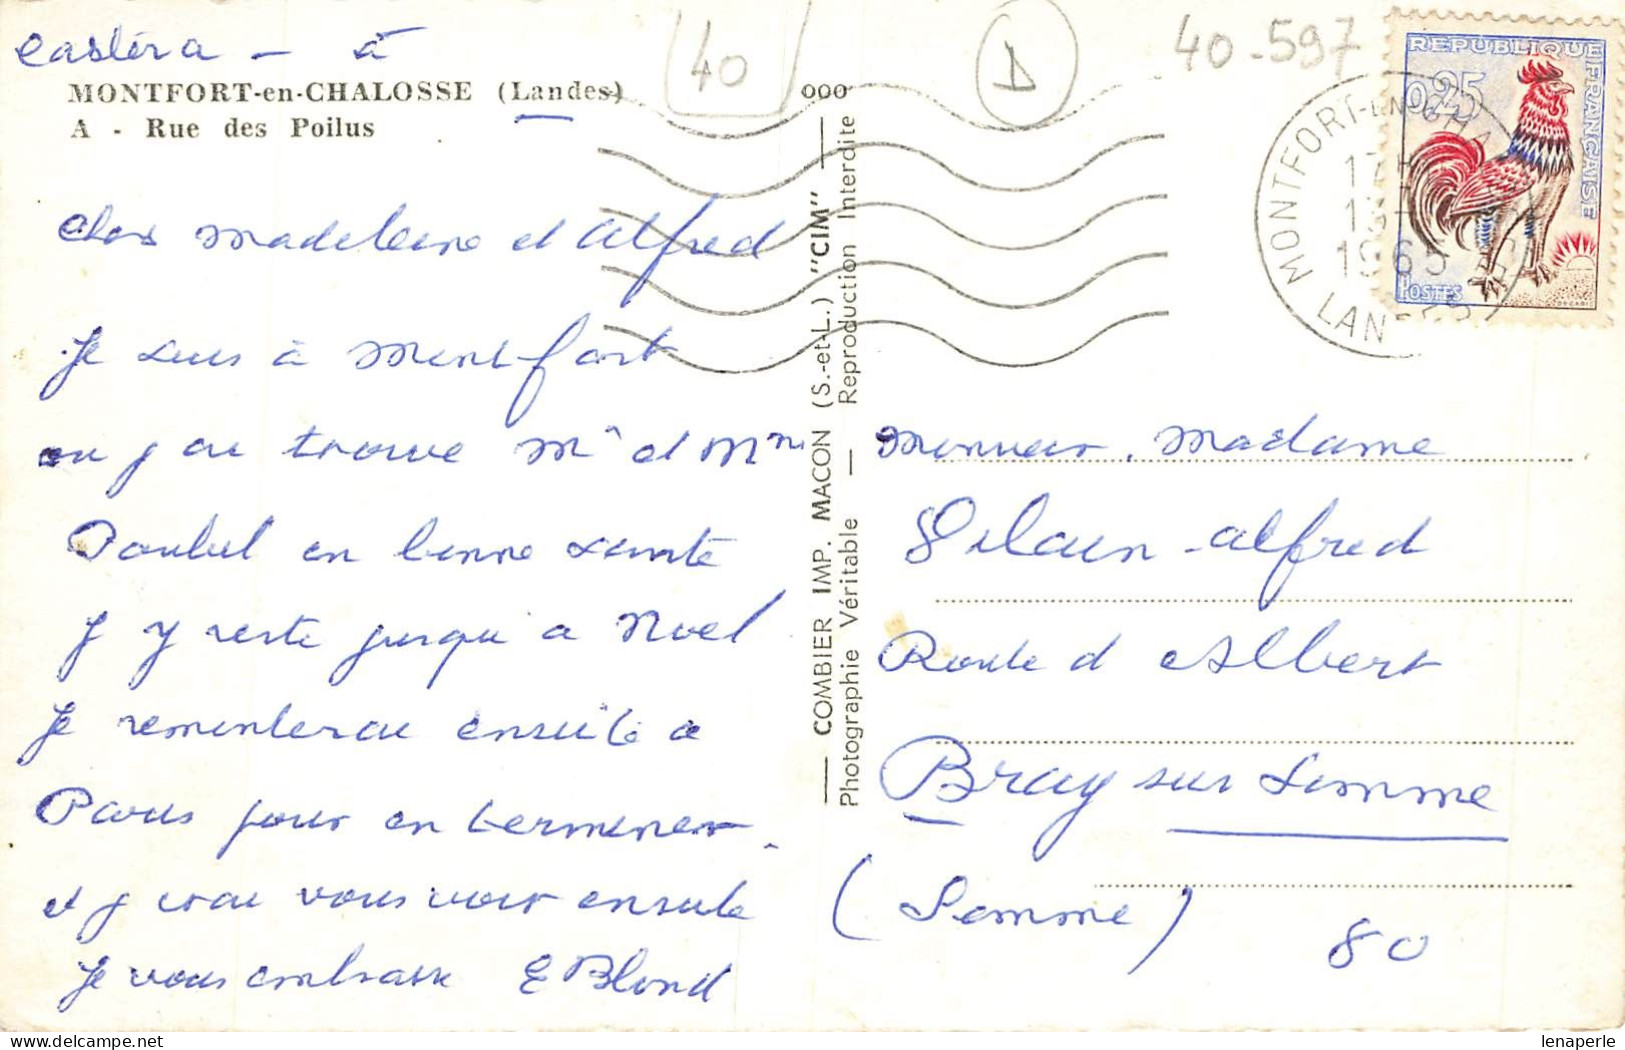 Castéra - à
MONTFORT-en-CHALOSSE (Landes)
A - Rue des Poilus
40
A
40-597
000
REPUBLIQUE FRANÇAISE
0,25
POSTES
DECARIS
MONTFORT-EN-CHALOSSE
17H
13-
1965
LANDES
Cher Madeleine et Alfred
Je suis à Montfort
ou j ai trouvé Mr et Mme
en bonne santé
j y reste jusqu a Noel
Je remonterai ensuite a
Paris pour en terminer
et j irai vous voir ensuite
Je vous embrasse E Blond
COMBIER IMP. MACON (S.-et-L.) "CIM"
Photographie Véritable — Reproduction Interdite
Monsieur, Madame
Vilain Alfred
Route d Albert
Bray sur Somme
(Somme)
80
lenaperle